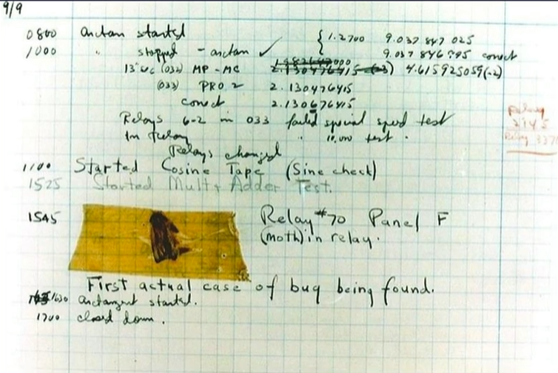 9/9
0800 Antan started
1000 " stopped - antan ✓ { 1.2700 9.037 847 025
9.037 846 995 correct
13"uc (032) MP - MC 2.130476415 4.615925059(-2)
(033) PRO 2 2.130476415
correct 2.130676415
Relays 6-2 in 033 failed special speed test
In Relay " 10.000 test.
Relays changed
1100 Started Cosine Tape (Sine check)
1525 Started Mult + Adder Test.
1545 Relay #70 Panel F
(moth) in relay.
First actual case of bug being found.
1630 antangent started.
1700 closed down.
Relay